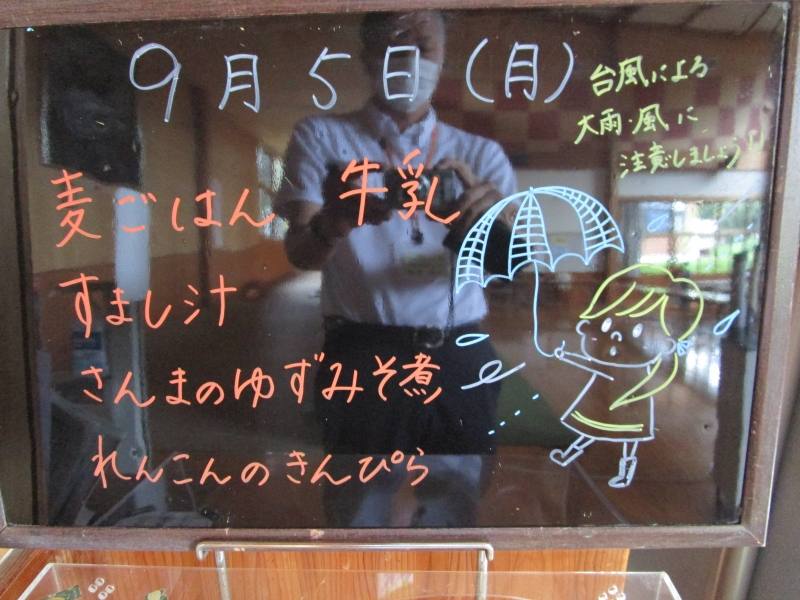 9月5日(月)
台風による
大雨・風に
注意しましょう!!
麦ごはん 牛乳
すまし汁
さんまのゆずみそ煮
れんこんのきんぴら